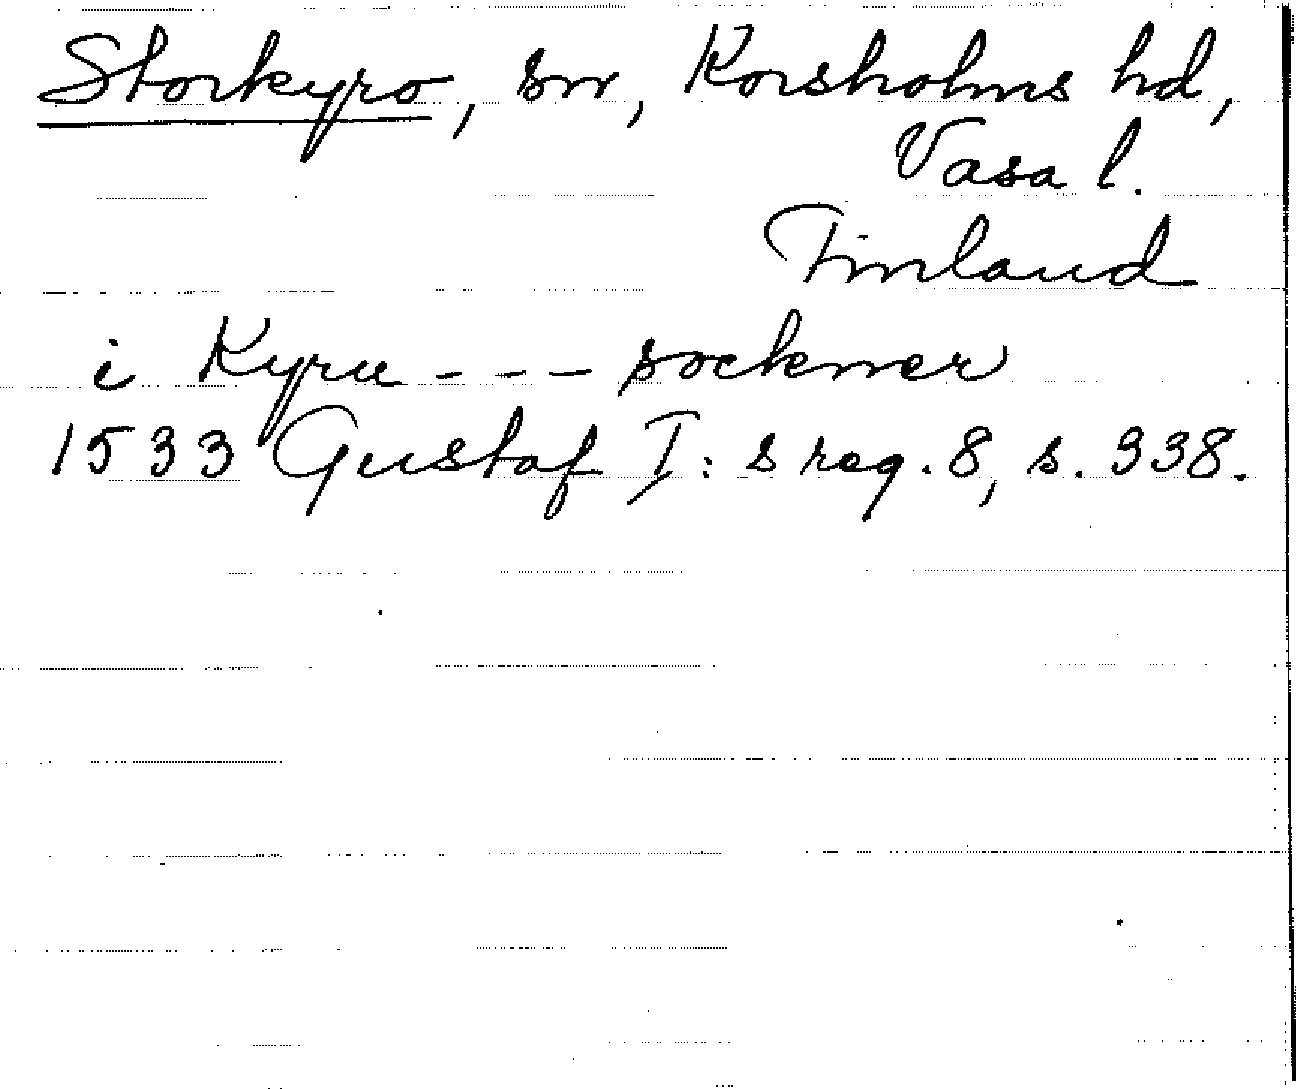 Storkyro, sn, Korsholms hd,
Vasa l.
Finland
i Kyru - - - sockner
1533 Gustaf I:s reg. 8, s. 338.